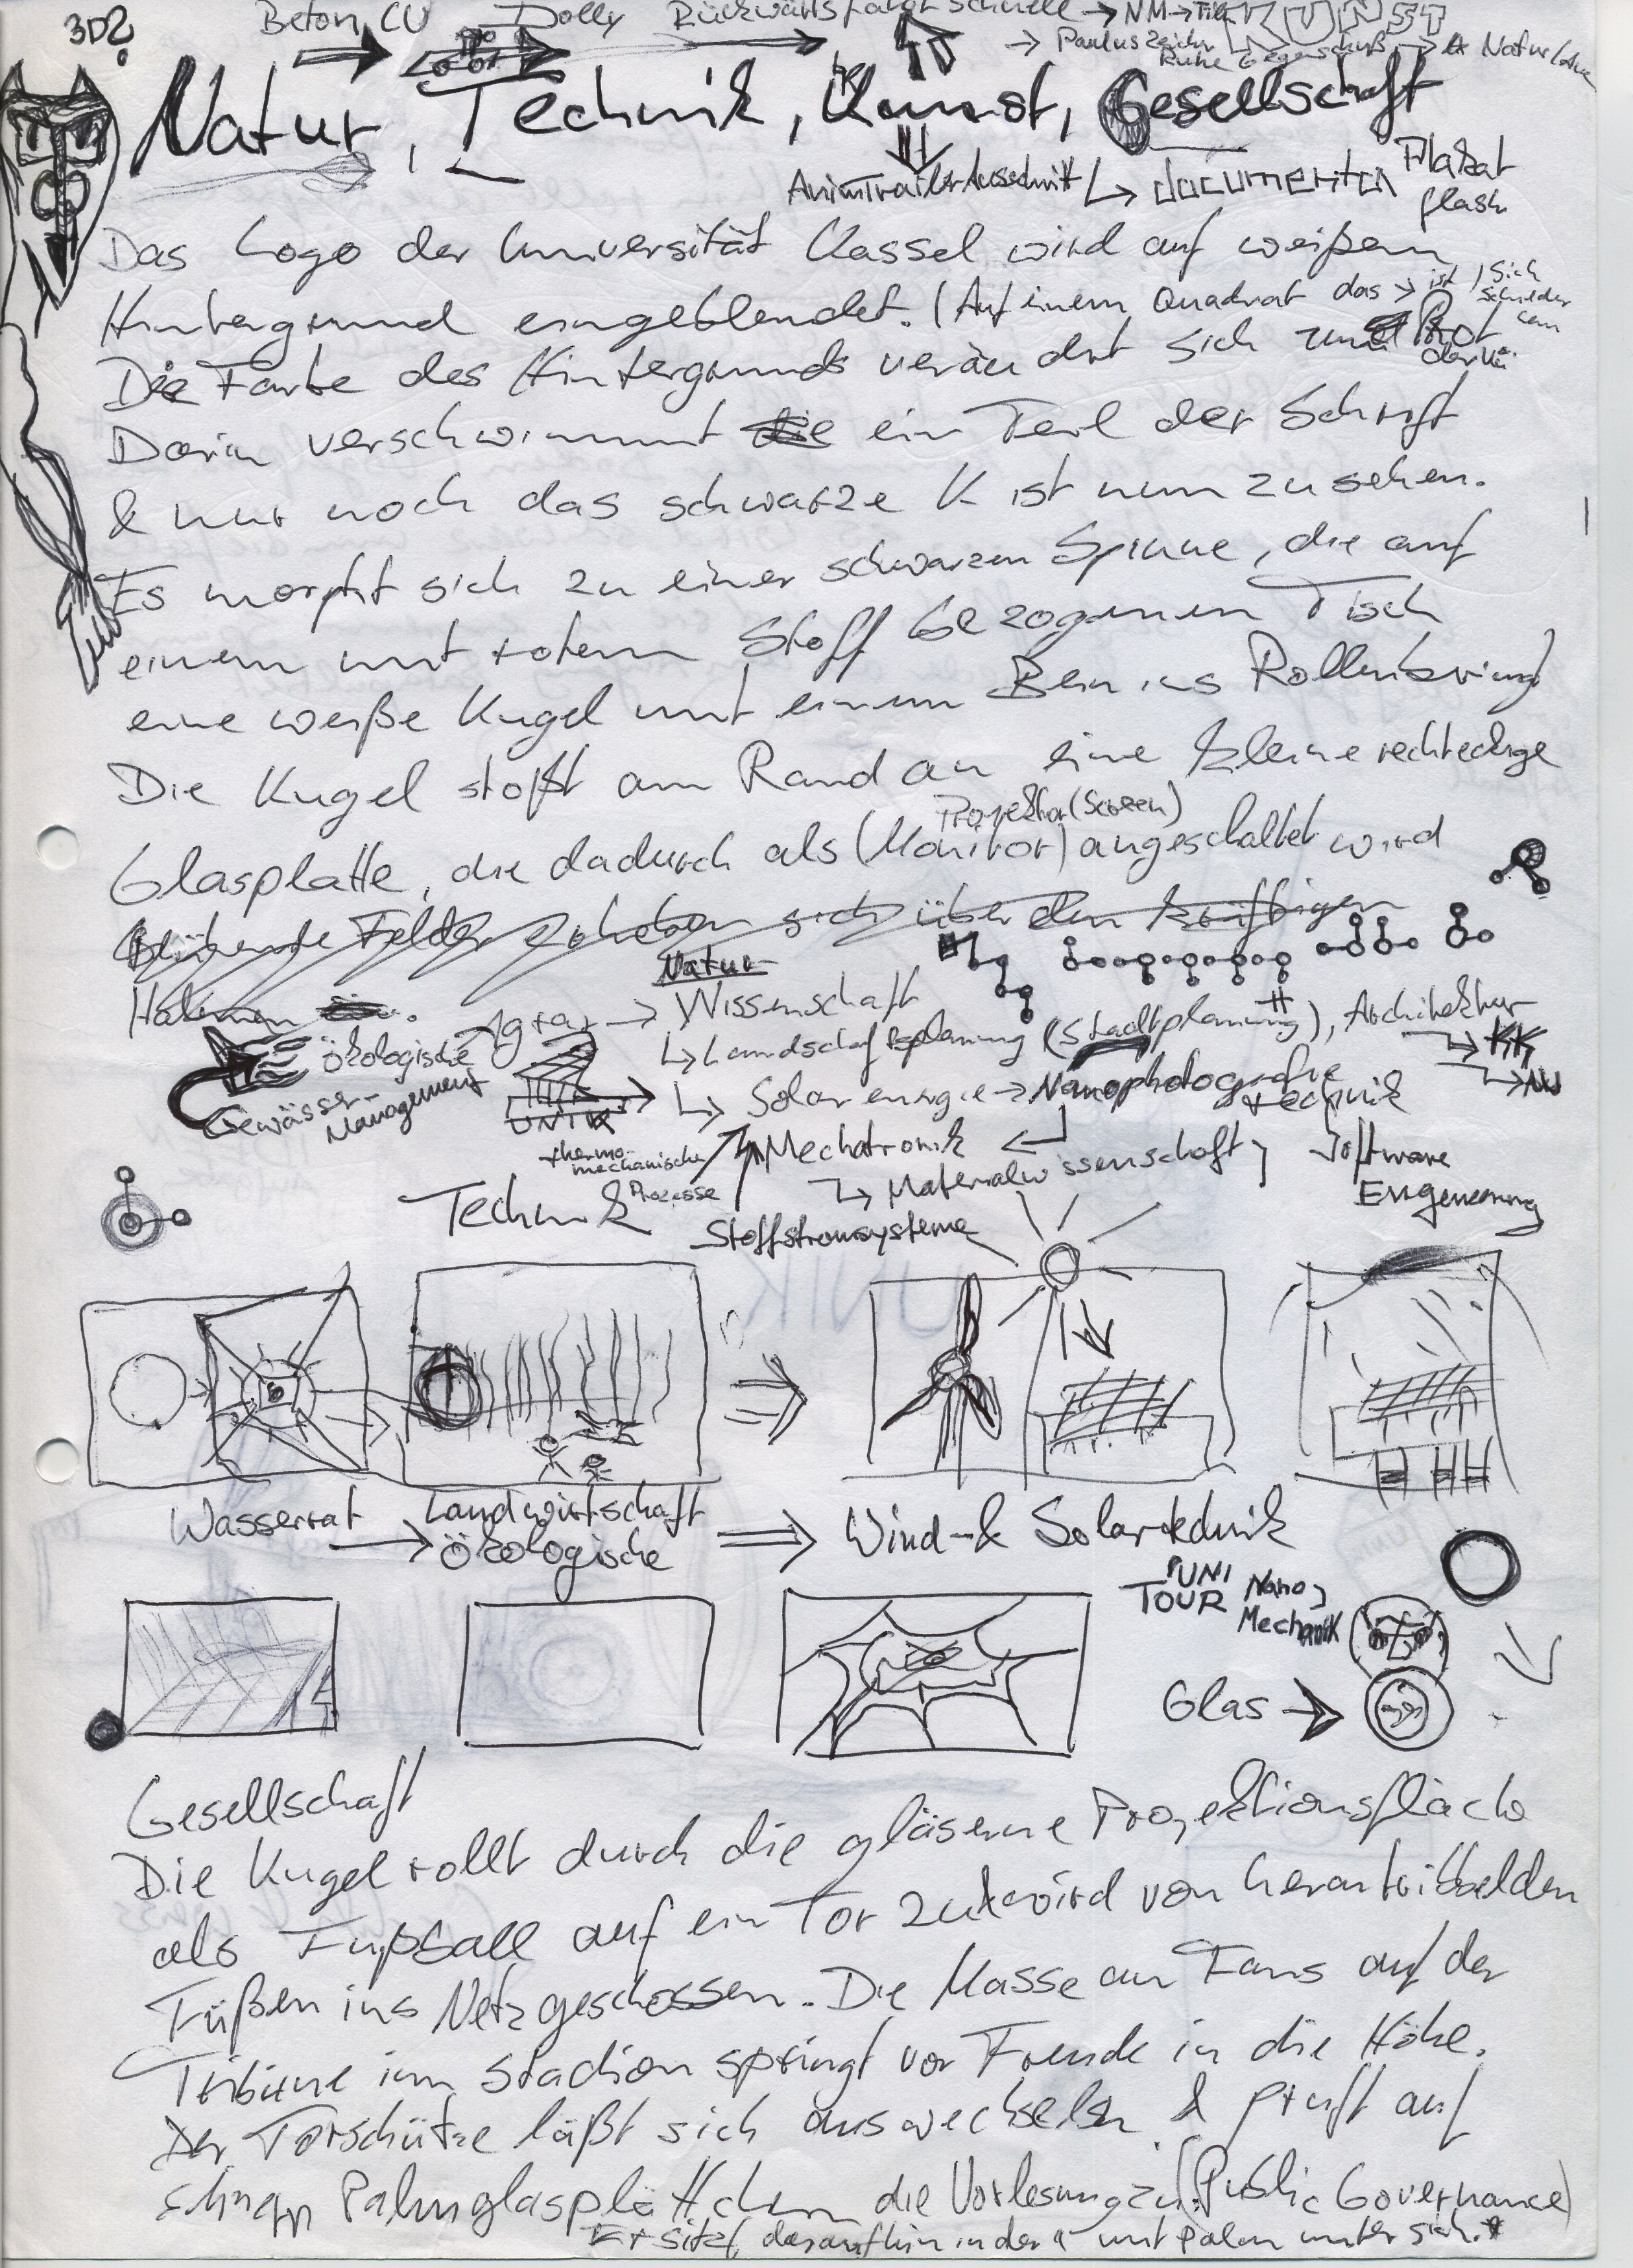 3D?
Beton CU Dolly Rückwärtsfahrt schnell → NM → Film
KUNST
→ Paulus Zeichn
Ruhe Gegenschuß → Natur
Natur, Technik, Kunst, Gesellschaft
AnimTrailerAusschnitt ↳ documenta Plakat
flash
Das Logo der Universität Kassel wird auf weißem
Hintergrund eingeblendet. (Auf einem Quadrat das → ist, sich
Die Farbe des Hintergrunds verändert sich zu Rot
Darin verschwimmt die ein Teil der Schrift
& nur noch das schwarze K ist nun zu sehen.
Es morpht sich zu einer schwarzen Spinne, die auf
einem mit rotem Stoff bezogenen Tisch
eine weiße Kugel mit einem Bein ins Rollen bringt
Die Kugel stößt am Rand an eine kleine rechteckige
Projektor (Screen)
Glasplatte, die dadurch als (Monitor) angeschaltet wird
Blühende Felder erheben sich über den kräftigen
Halmen
Natur
Agrar → Wissenschaft
ökologische
Gewässer-
Management
↳ Landschaftsplanung (Stadtplanung), Architektur
UNIK
↳ Solarenergie → Nanophotografie
technik
thermo-
mechanische
Prozesse
Mechatronik
↳ Materialwissenschaft
Software
Engeneering
Technik
Stoffstromsysteme
Wasserrat → Landwirtschaft
ökologische
⇒ Wind- & Solartechnik
UNI
TOUR
Nano
Mechanik
Glas →
Gesellschaft
Die Kugel rollt durch die gläserne Projektionsfläche
als Fußball auf ein Tor zu & wird von herantribbelden
Füßen ins Netz geschossen. Die Masse an Fans auf der
Tribüne im Stadion springt vor Freude in die Höhe.
Der Torschütze läßt sich auswechseln & prüft auf
Palmglasplättchen die Vorlesung zu (Public Governance)
Er sitzt daraufhin in der mit Palm unter sich.